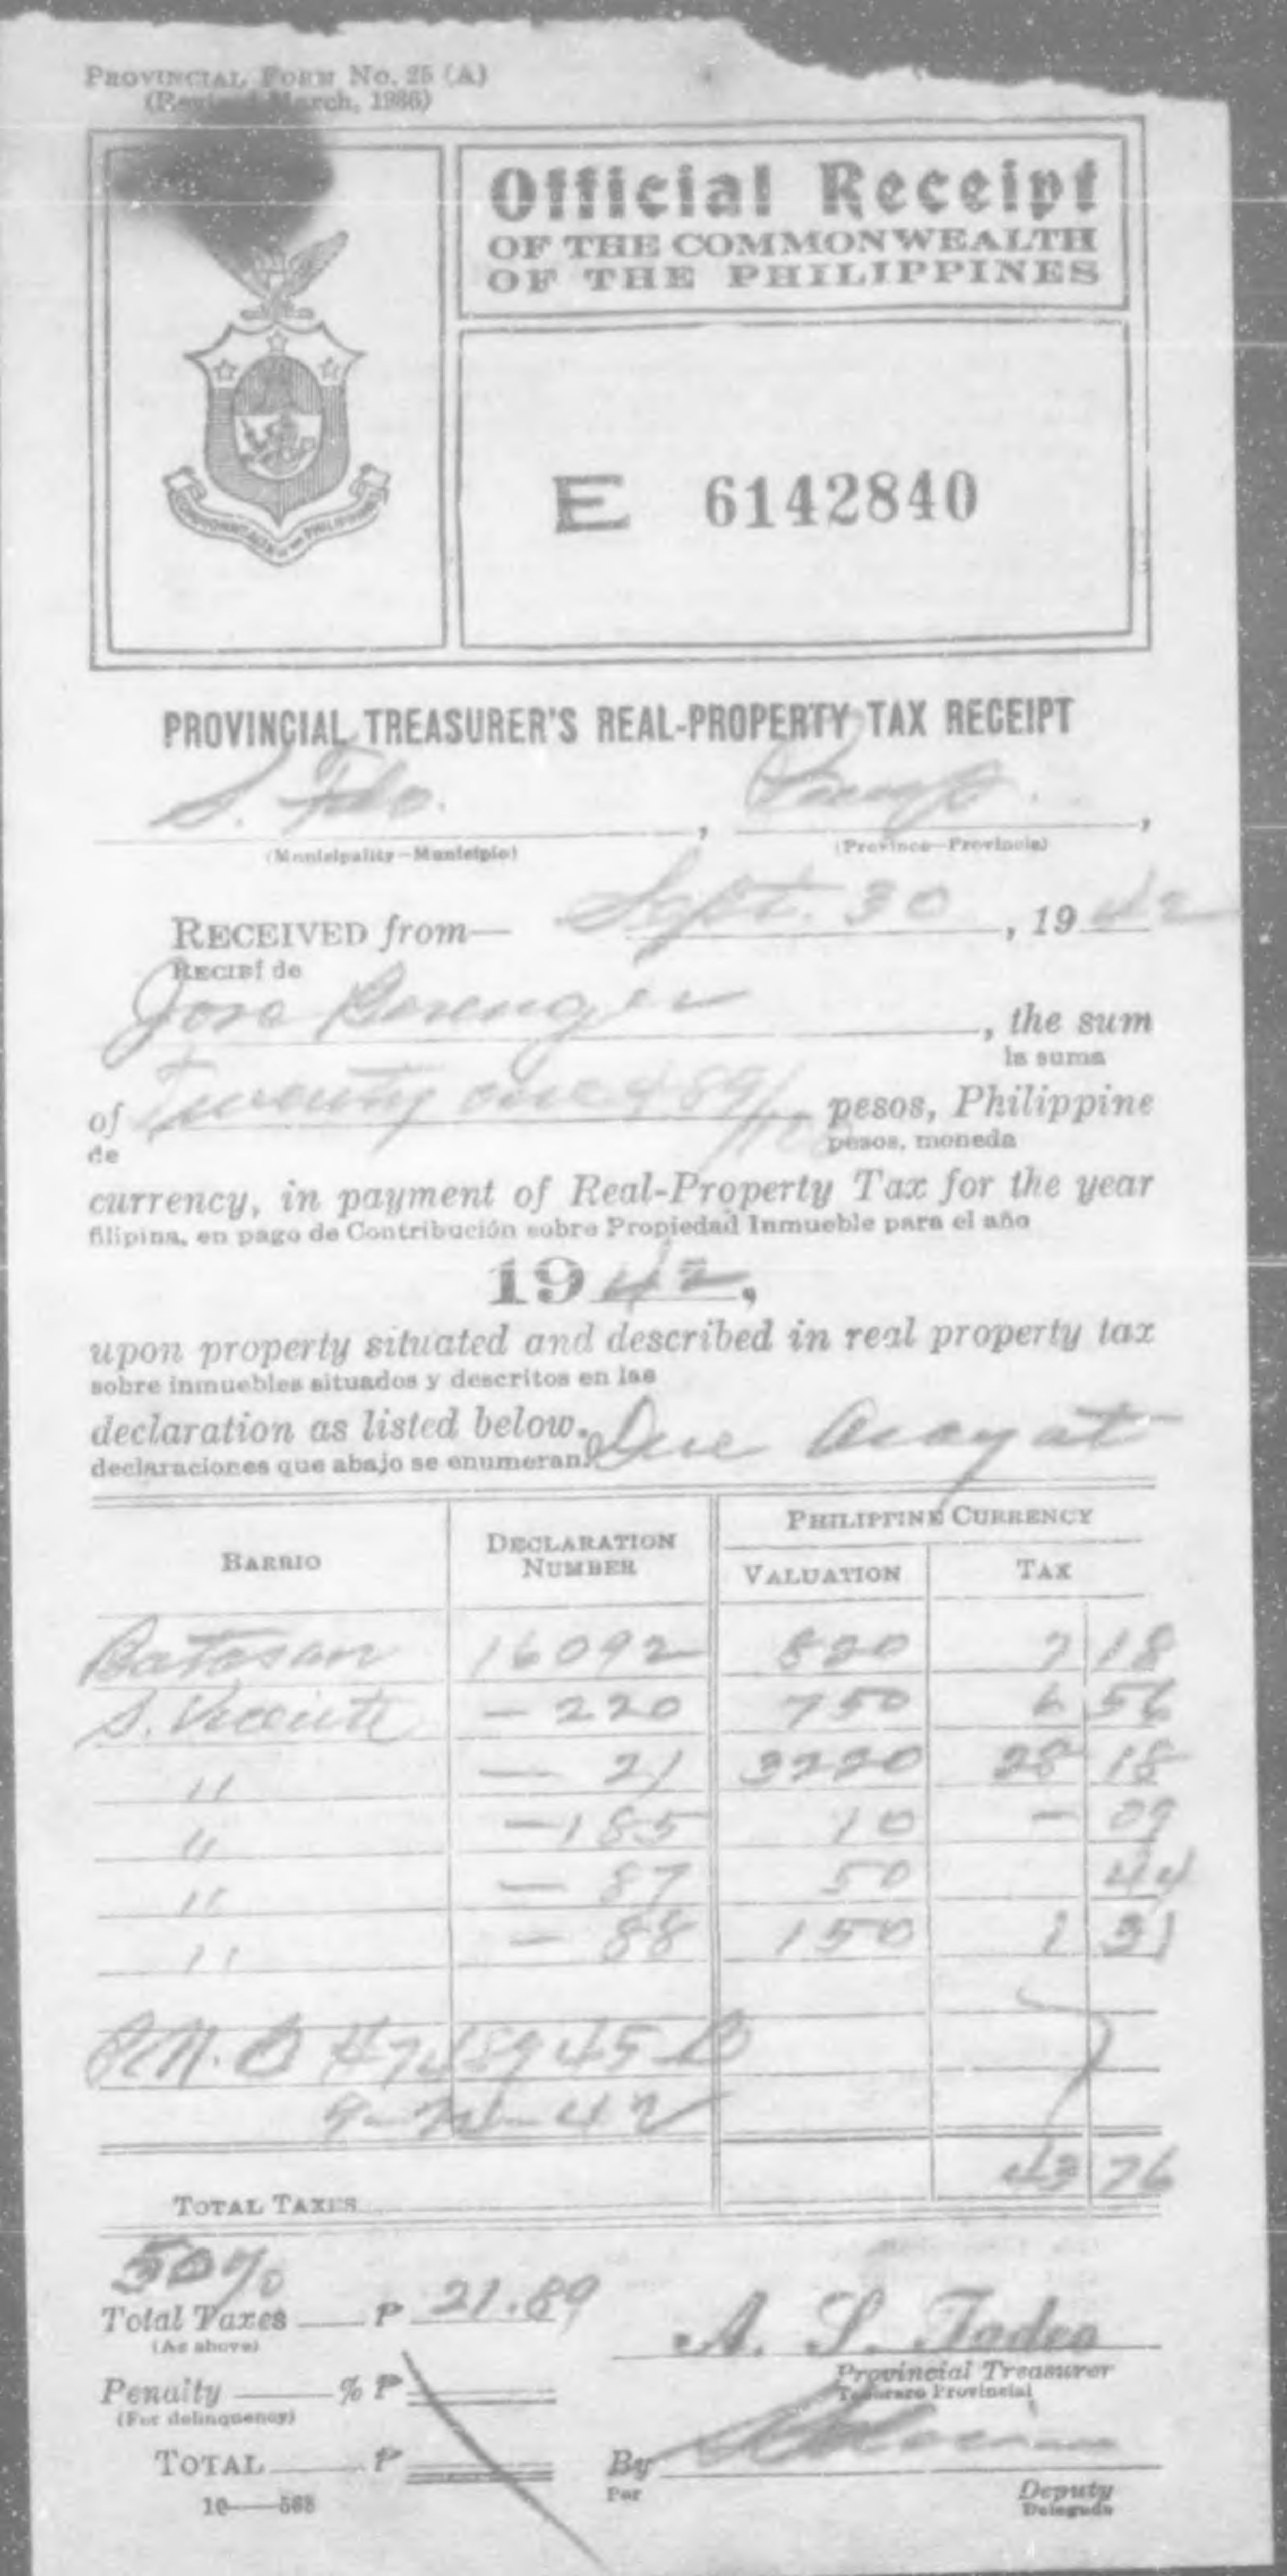 PROVINCIAL FORM No. 25 (A)
(Revised March, 1936)
Official Receipt
OF THE COMMONWEALTH
OF THE PHILIPPINES
COMMONWEALTH OF THE PHILIPPINES
E 6142840
PROVINCIAL TREASURER'S REAL-PROPERTY TAX RECEIPT
S. Fdo. , Pamp. ,
(Municipality—Municipio) (Province—Provincia)
RECEIVED from— Sept. 30 , 19 42
RECIBÍ de
Jose Berenguer , the sum
la suma
of Twenty one & 89/100 pesos, Philippine
de pesos, moneda
currency, in payment of Real-Property Tax for the year
filipina, en pago de Contribución sobre Propiedad Inmueble para el año
19 42,
upon property situated and described in real property tax
sobre inmuebles situados y descritos en las
declaration as listed below. Due Arayat
declaraciones que abajo se enumeran.
BARRIO DECLARATION NUMBER PHILIPPINE CURRENCY
VALUATION TAX
Batasan 16092 820 7 18
S. Vicente - 220 750 6 56
" - 21 3220 28 18
" - 185 10 - 09
" - 87 50 44
" - 88 150 1 31
P.M.O #748945
42
TOTAL TAXES 43 76
50%
Total Taxes P 21.89
(As above)
A. S. Tadeo
Provincial Treasurer
Tesorero Provincial
Penalty % P
(For delinquency)
TOTAL P
By
Por
Deputy
Delegado
10—568